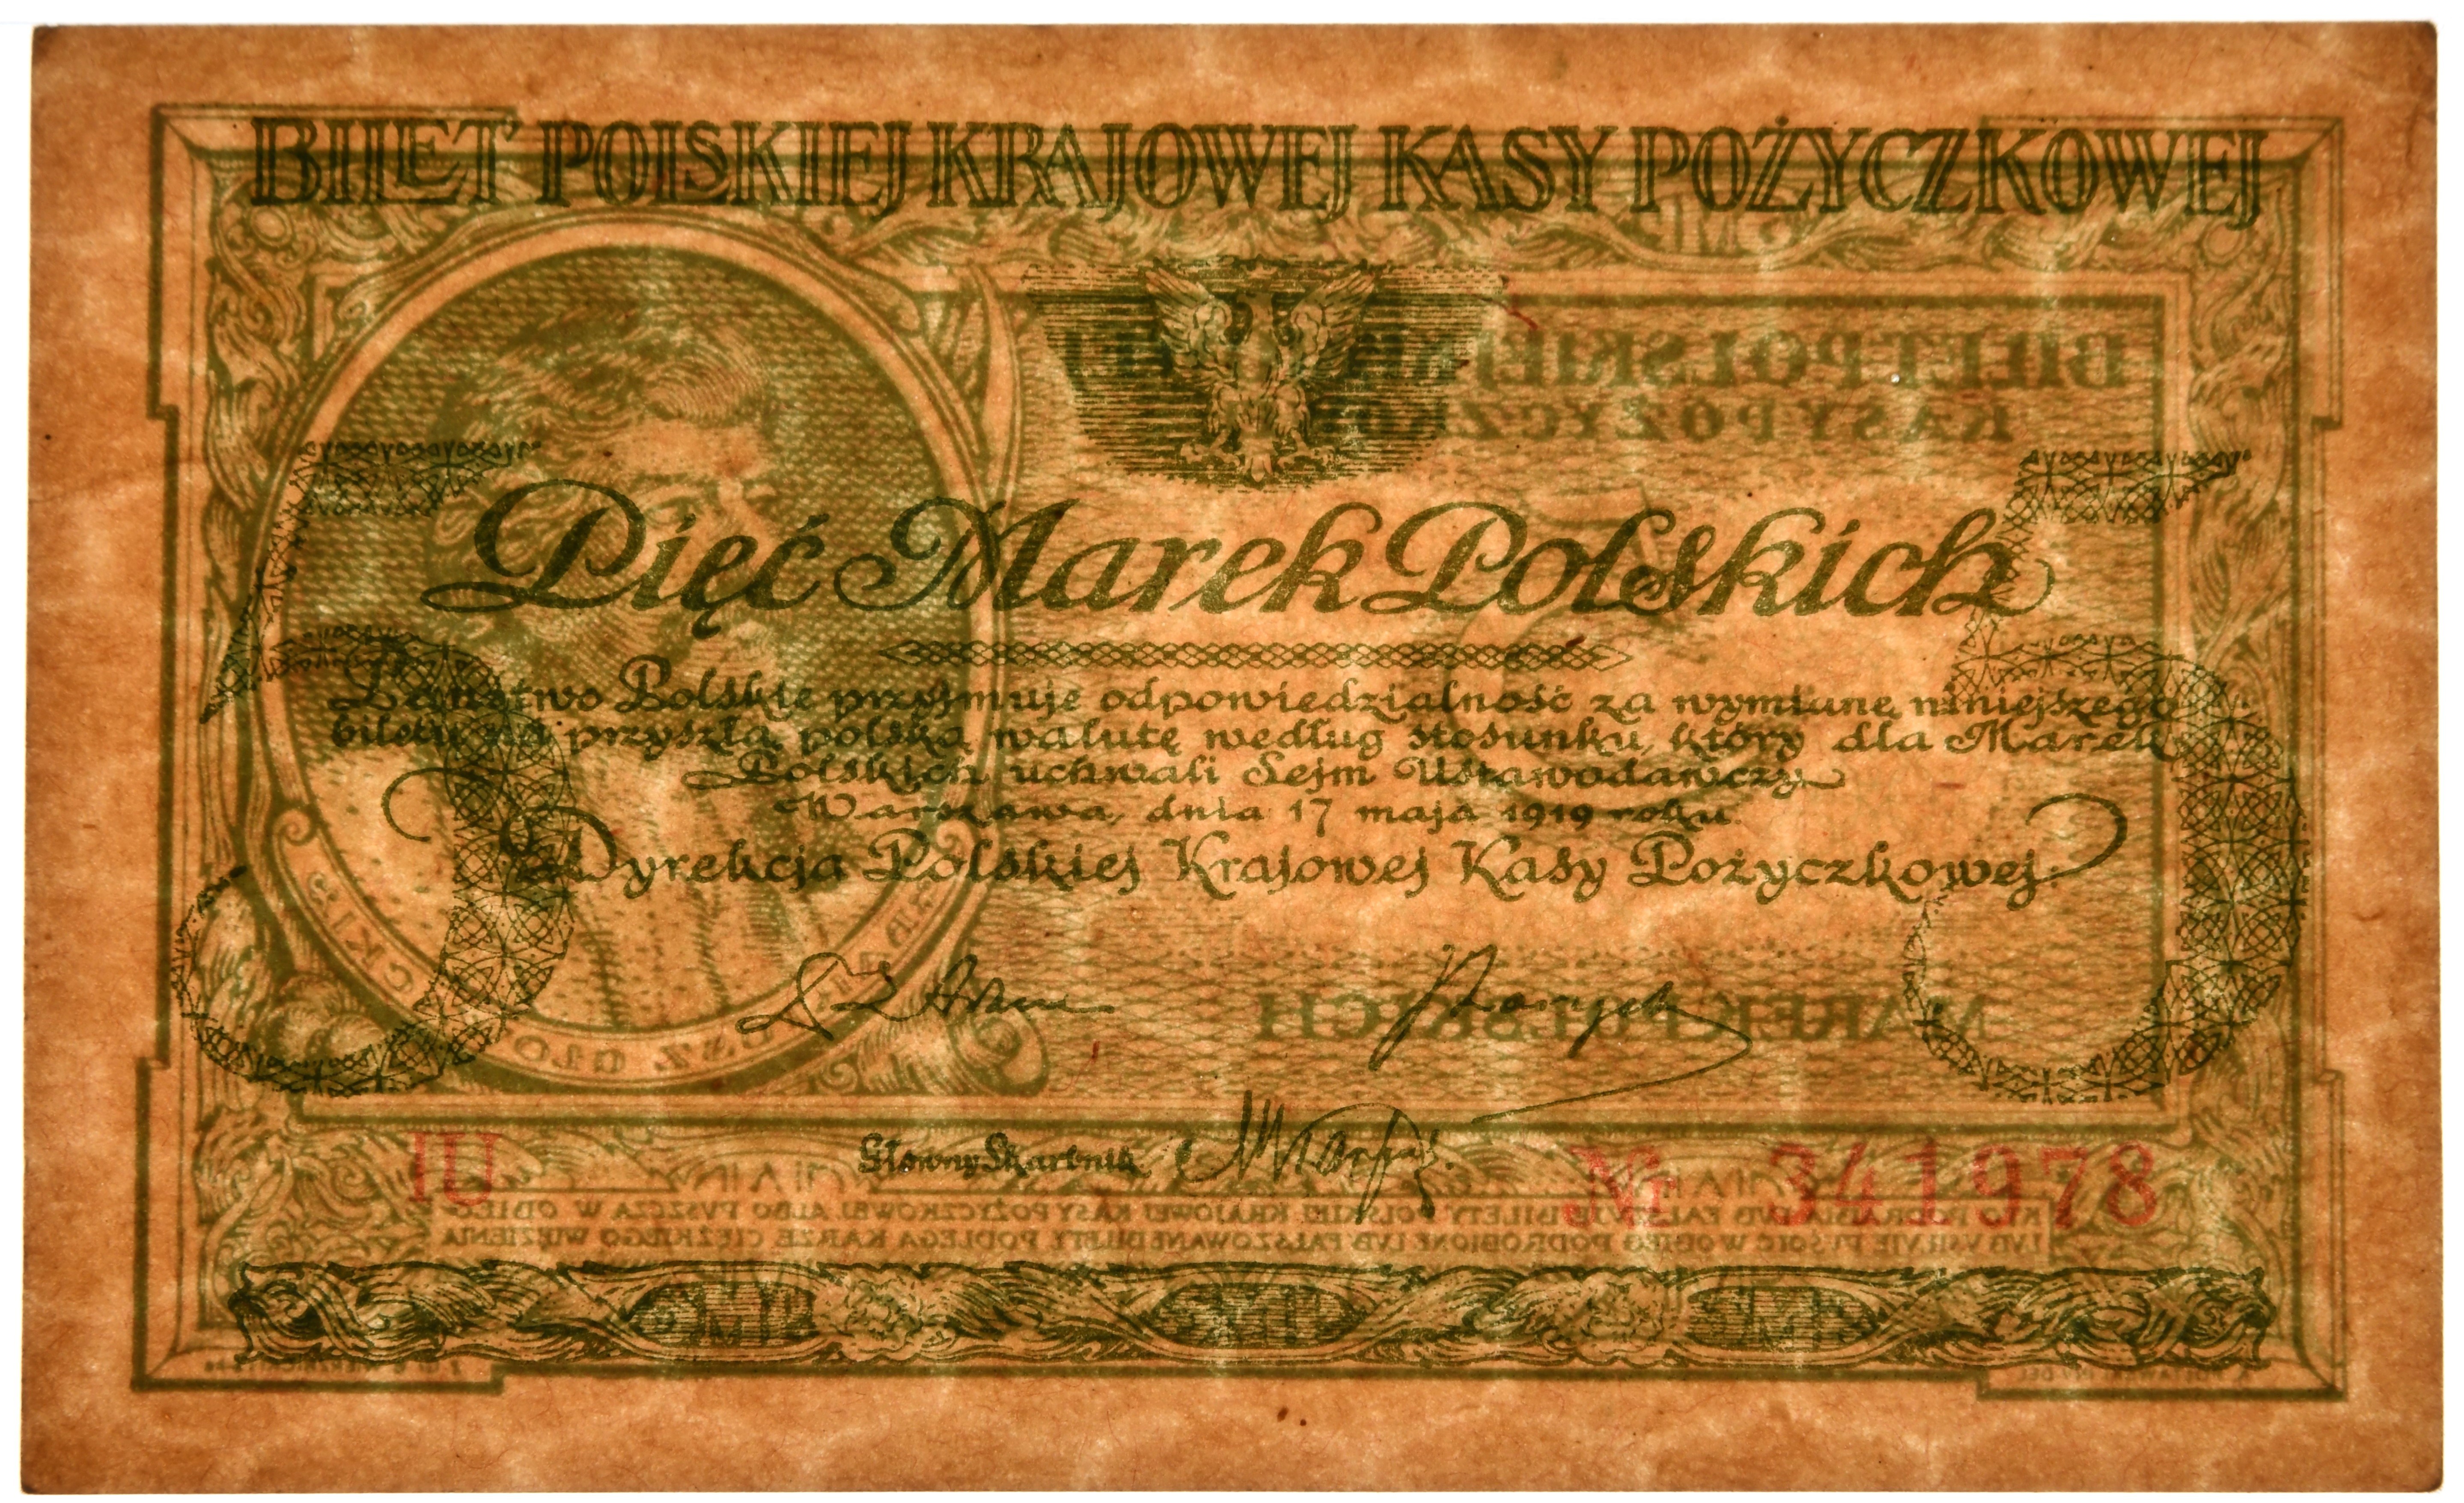 BILET POLSKIEJ KRAJOWEJ KASY POŻYCZKOWEJ
BILET POLSKIEJ
KASY POŻYCZ
Pięć Marek Polskich
5 5
Państwo Polskie przyjmuje odpowiedzialność za wymianę niniejszego
biletu na przyszłą polską walutę według stosunku, który dla Marek
Polskich uchwali Sejm Ustawodawczy
Warszawa, dnia 17 maja 1919 roku.
Dyrekcja Polskiej Krajowej Kasy Pożyczkowej:
MAREK POLSKICH
IU
Główny Skarbnik
№ 341978
KTO PODRABIA LVB FAŁSZVJE BILETY POLSKIEJ KRAJOWEJ KASY POŻYCZKOWEJ ALBO PVSZCZA W OBIEG
LVB VSIŁVJE PVŚCIĆ W OBIEG PODROBIONE LVB FAŁSZOWANE BILETY PODLEGA KARZE CIĘŻKIEGO WIĘZIENIA